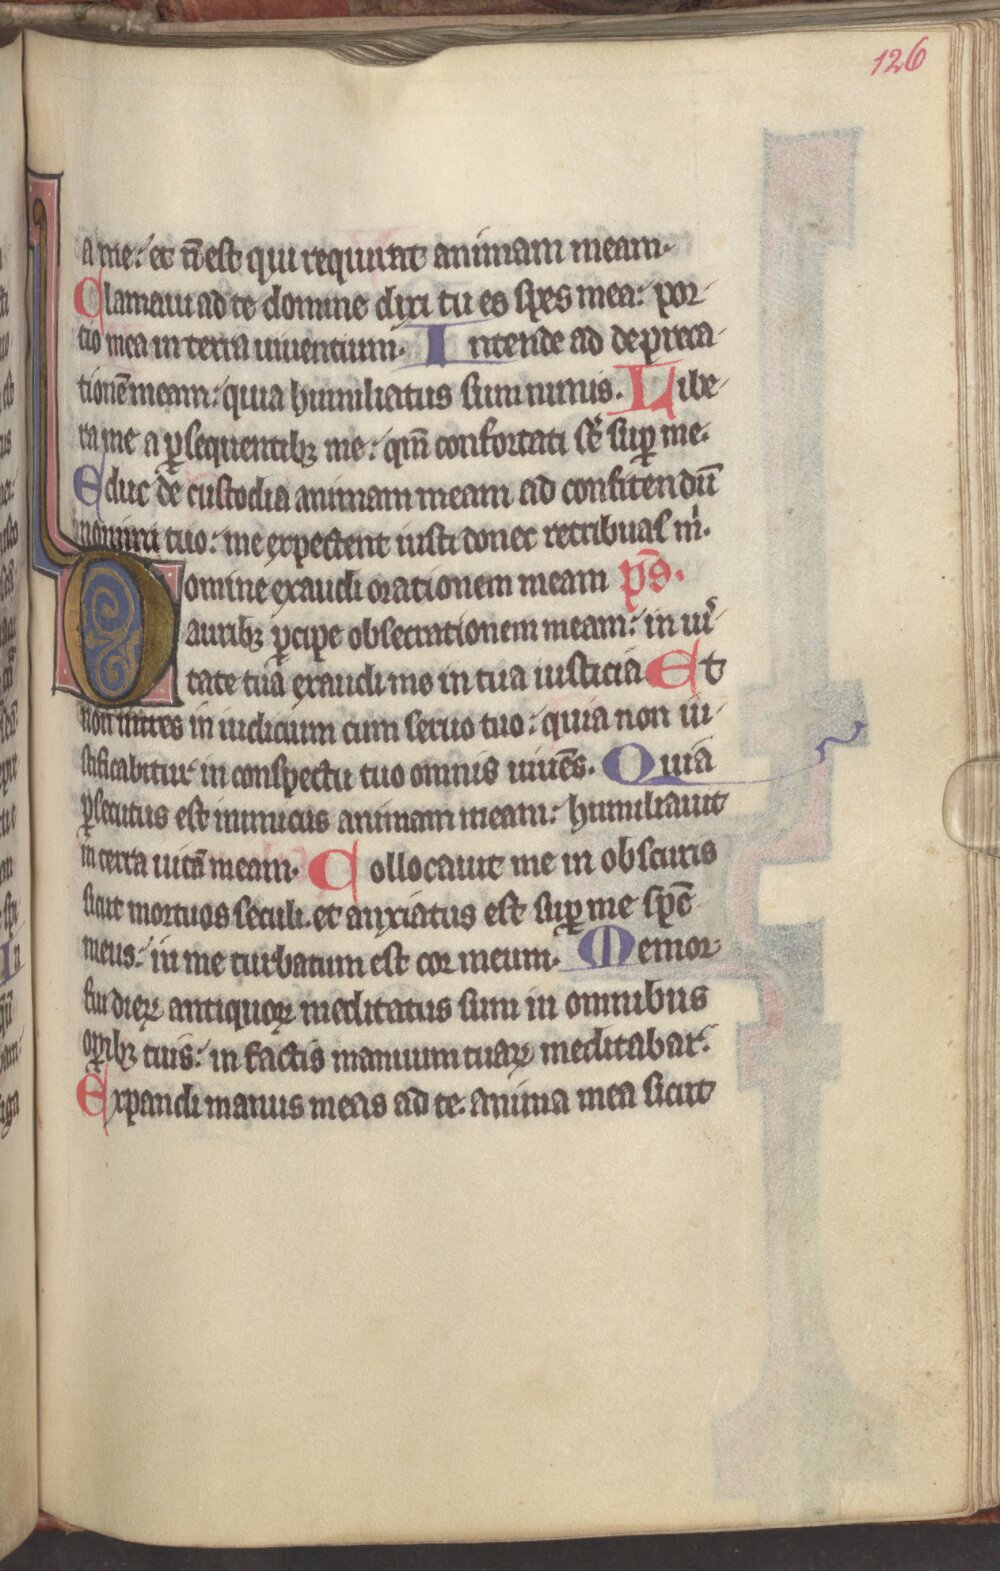 126
a me: et n̄ est qui requirat animam meam.
Clamaui ad te domine dixi tu es spes mea: por-
tio mea in terra uiuentium. Intende ad depreca-
tionē meam: quia humiliatus sum nimis. Libe-
ra me a ꝑsequentibꝫ me: qm̄ confortati st̄ suꝑ me.
Educ de custodia animam meam ad confitendū
nomini tuo: me expectent iusti donec retribuas m̍.
Domine exaudi orationem meam ps̄.
auribꝫ ꝑcipe obsecrationem meam: in ui͛-
tate tua exaudi me in tua iusticia Et
non intres in iudicium cum seruo tuo: quia non iu-
stificabitur in conspectu tuo omnis uiuēs. Quia
ꝑsecutus est inimicus animam meam: humiliauit
in terra uitā meam. Collocauit me in obscuris
sicut mortuos seculi. et anxiatus est suꝑ me spc̄
meus: in me turbatum est cor meum. Memor
fui dieꝝ antiquoꝝ meditatus sum in omnibus
oꝑibꝫ tuis: in factis manuum tuaꝝ meditabar.
Expandi manus meas ad te. anima mea sicut